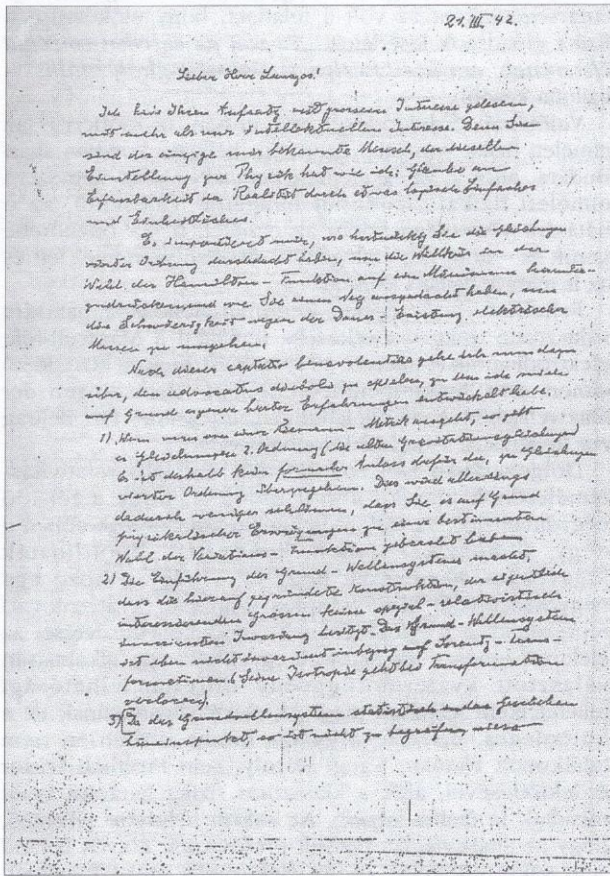 21. III. 42.
Lieber Herr Lanczos!
Ich habe Ihren Aufsatz mit grossem Interesse gelesen,
mit mehr als nur intellektuellem Interesse. Denn Sie
sind der einzige mir bekannte Mensch, der dieselbe
Einstellung zur Physik hat wie ich: Glaube an
Erfassbarkeit der Realität durch etwas logisch Einfaches
und Einheitliches.
Es imponiert mir, wie Sie die Gleichungen
vierter Ordnung durchdacht haben, um die Willkür in der
Wahl der Hamilton-Funktion auf ein Minimum
und wie Sie einen Weg ausgedacht haben, um
die Schwierigkeit wegen der Dauer-Existenz elektrischer
Massen zu umgehen.
Nach dieser captatio benevolentiae gehe ich nun dazu
über, den advocatus diaboli zu spielen, zu dem ich mich
auf Grund eigener harter Erfahrungen entwickelt habe.
1) Wenn man von einer Riemann-Metrik ausgeht, so gibt
es Gleichungen 2. Ordnung (die alten Gravitationsgleichungen)
Es ist deshalb kein formaler Anlass dafür da, zu Gleichungen
vierter Ordnung überzugehen. Dies wird allerdings
dadurch weniger schlimm, dass Sie es auf Grund
physikalischer Erwägungen zu einer bestimmten
Wahl der Variations-Funktion gebracht haben
2) Die Einführung des Grund-Wellensystems macht,
dass die hierauf gegründete Konstruktion, der eigentlich
interessierenden Grössen keine speziell-relativistisch
invarianten besitzt. Das Grund-Wellensystem
ist eben nicht invariant inbezug auf Lorentz-Trans-
formationen (Seine Isotropie geht bei Transformation
verloren)!
3) Da das Grundwellensystem statistisch in das Geschehen
so ist nicht zu begreifen, wieso